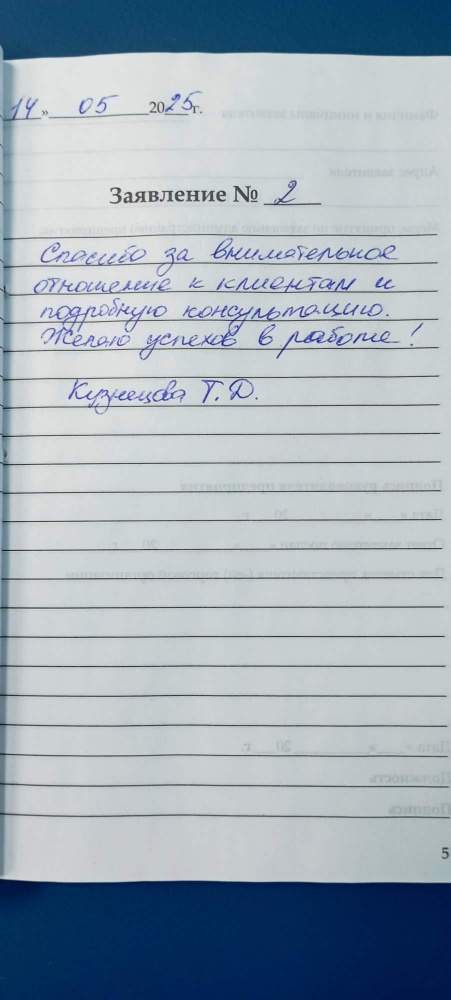 14» 05 2025г.
Заявление № 2
Спасибо за внимательное
отношение к клиентам и
подробную консультацию.
Желаю успехов в работе!
Кузнецова Т.Д.
5